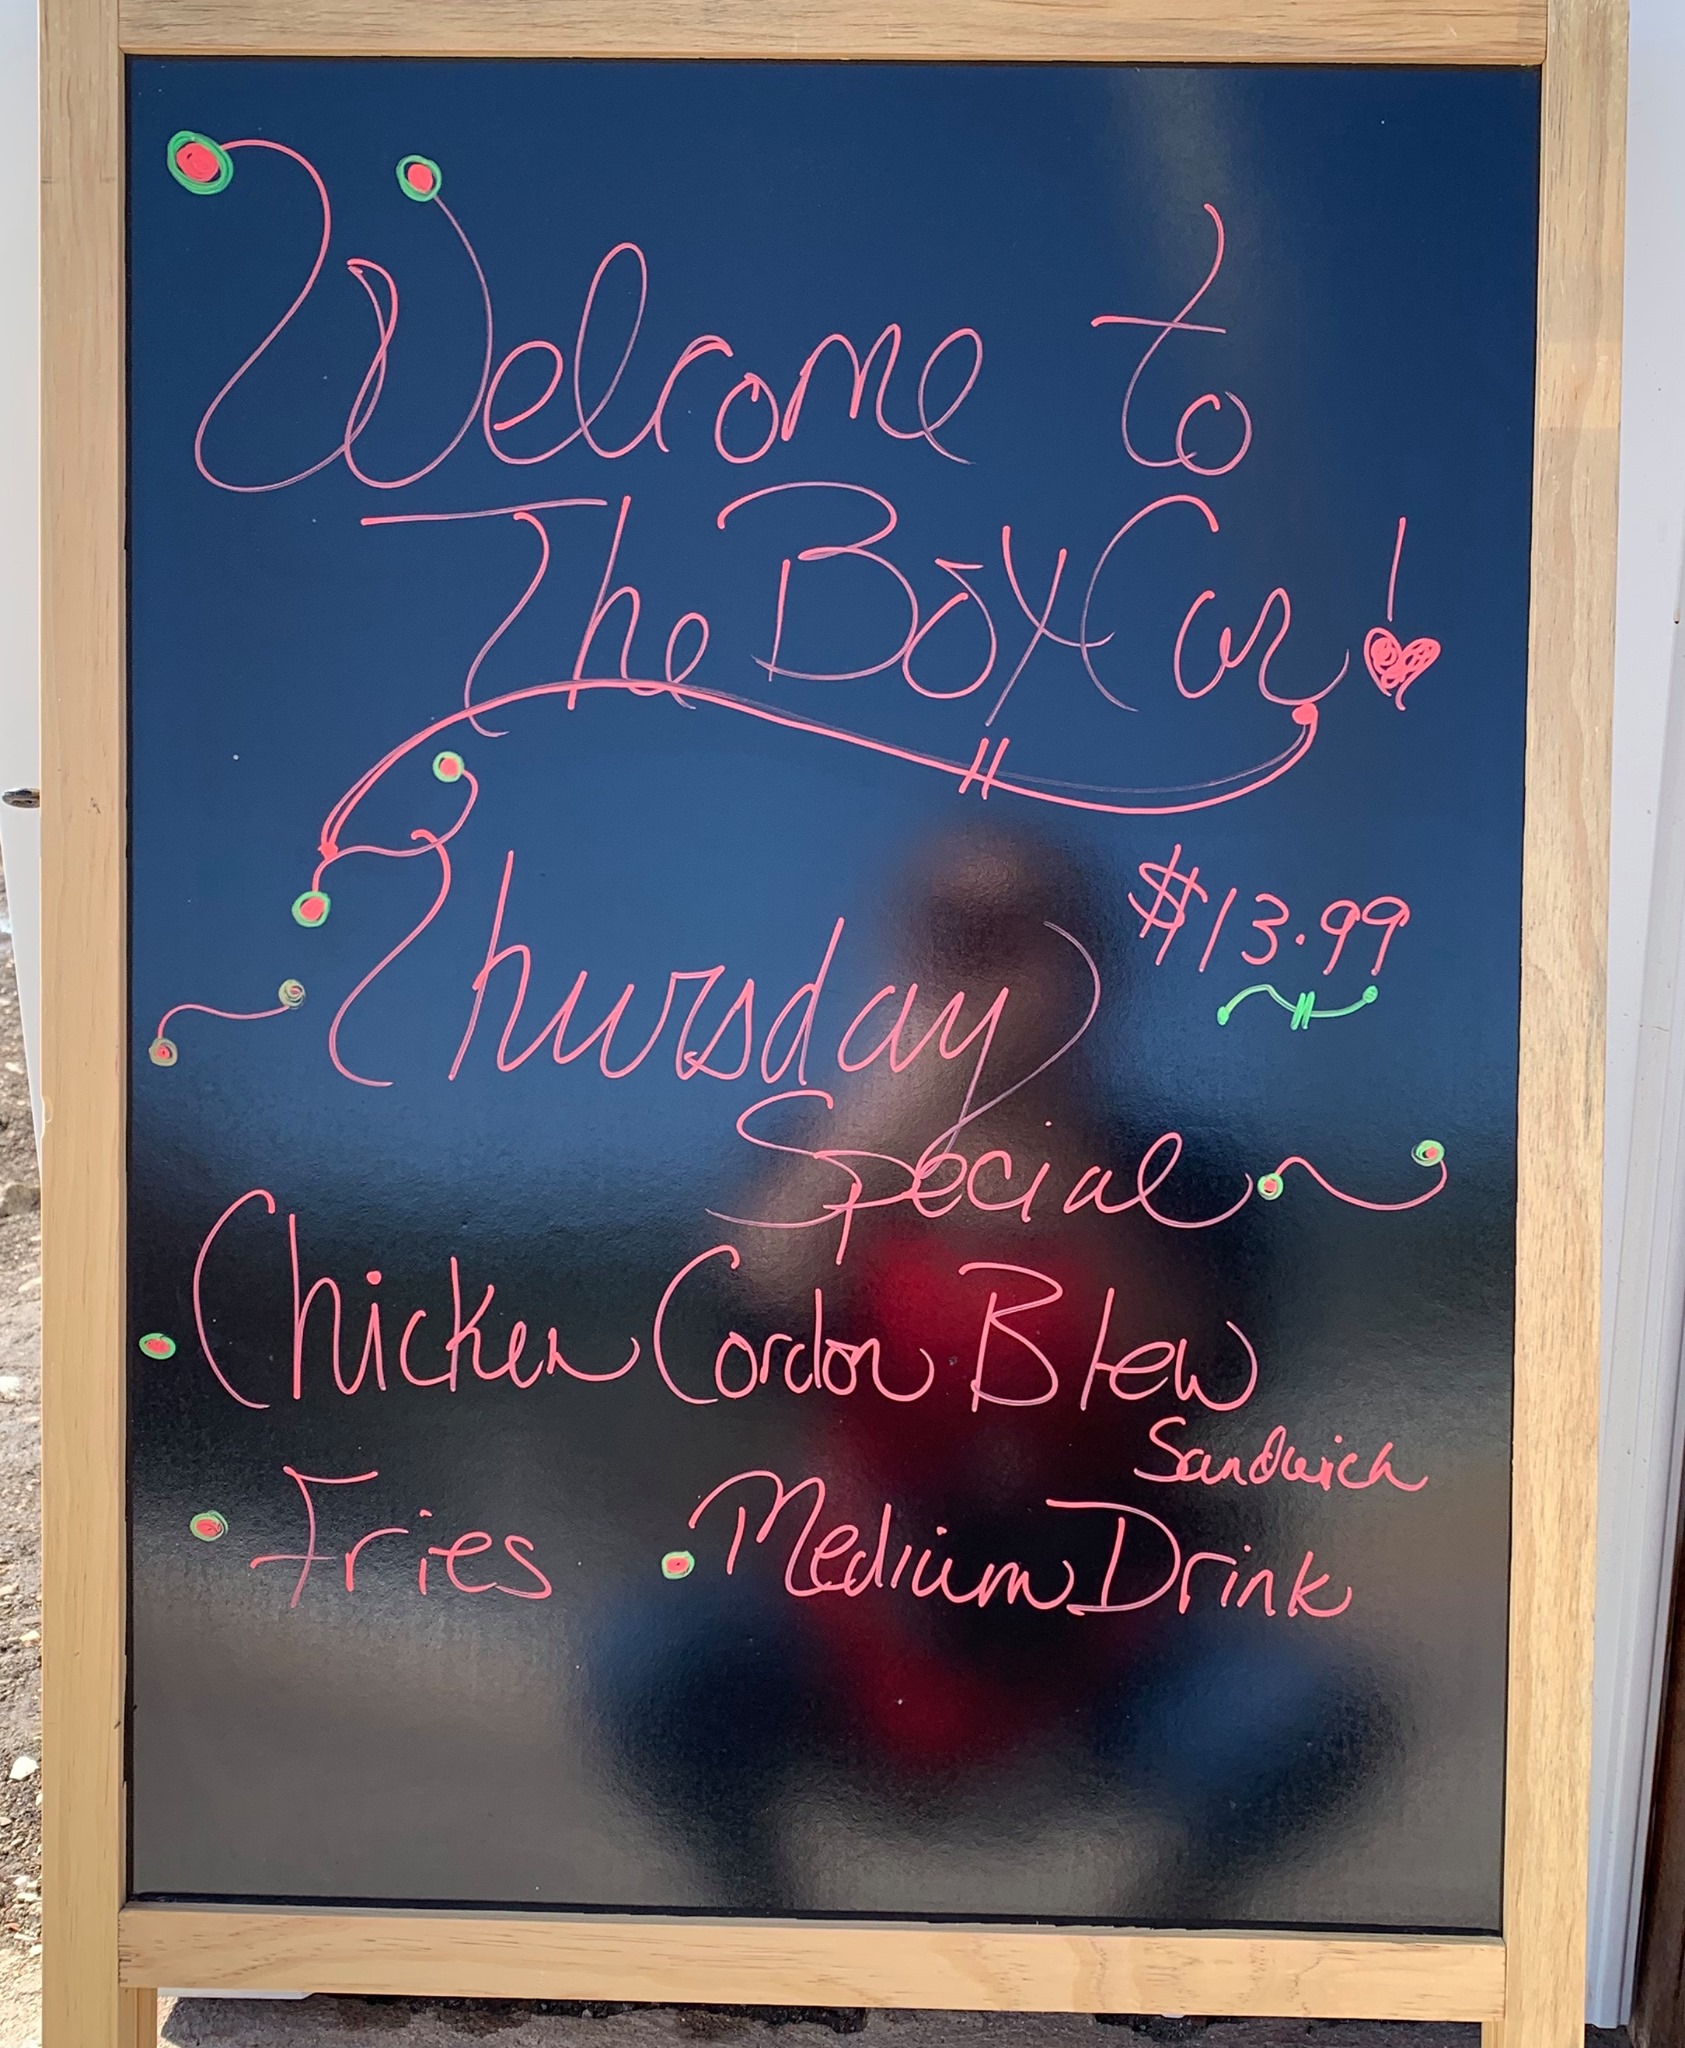 Welcome to
The BoxCar!
$13.99
Thursday
Special
Chicken Cordon Blew
Sandwich
Fries Medium Drink